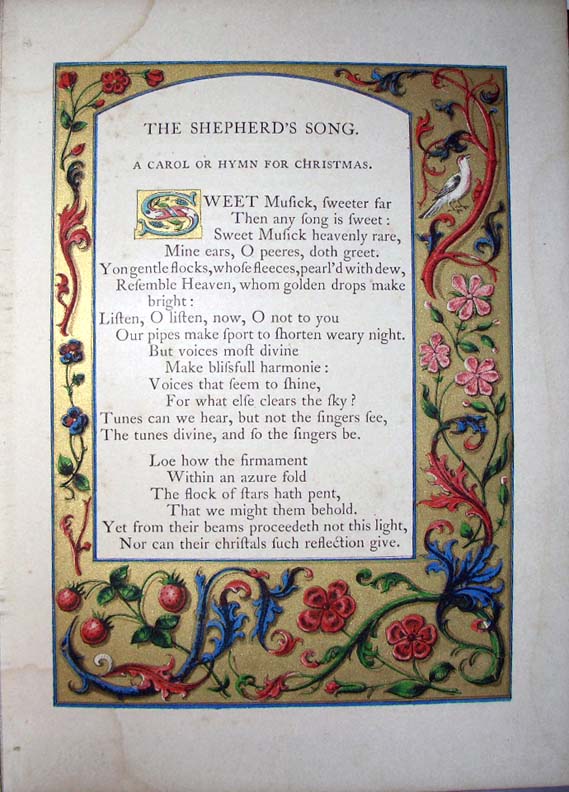 THE SHEPHERD'S SONG.
A CAROL OR HYMN FOR CHRISTMAS.
SWEET Muſick, ſweeter far
Then any ſong is ſweet:
Sweet Muſick heavenly rare,
Mine ears, O peeres, doth greet.
Yon gentle flocks, whoſe fleeces, pearl'd with dew,
Reſemble Heaven, whom golden drops make
bright:
Liſten, O liſten, now, O not to you
Our pipes make ſport to ſhorten weary night.
But voices moſt divine
Make bliſsfull harmonie:
Voices that ſeem to ſhine,
For what elſe clears the ſky?
Tunes can we hear, but not the ſingers ſee,
The tunes divine, and ſo the ſingers be.
Loe how the firmament
Within an azure fold
The flock of ſtars hath pent,
That we might them behold.
Yet from their beams proceedeth not this light,
Nor can their chriſtals ſuch reflection give.